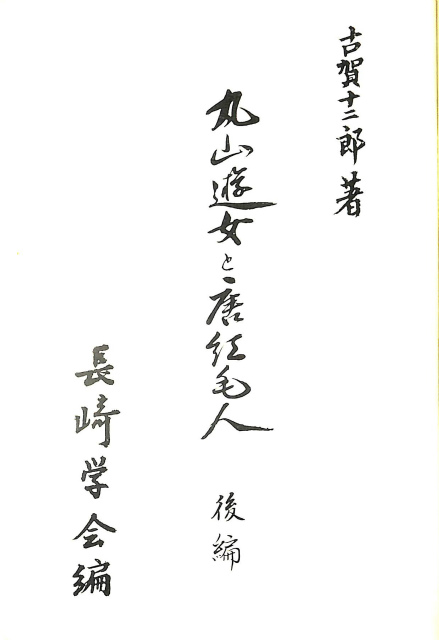 古賀十二郎著
丸山遊女と唐紅毛人　後編
長崎学会編